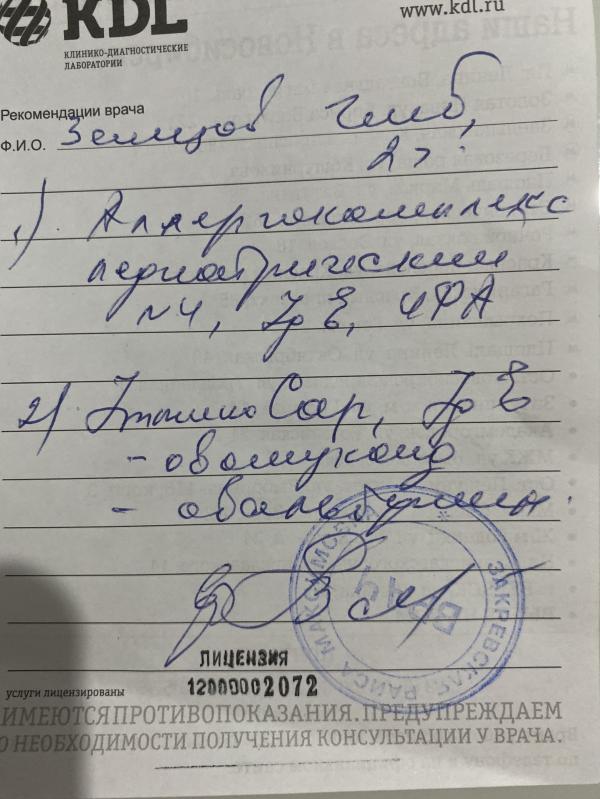 KDL
КЛИНИКО-ДИАГНОСТИЧЕСКИЕ
ЛАБОРАТОРИИ
www.kdl.ru
Рекомендации врача
Ф.И.О. Земцов Глеб,
2 г.
1) Аллергокомплекс
педиатрический
№4, Ig E, ИФА
2) ИммуноCap, Ig E
- овомукоид
- овальбумин.
ЗАКРЕВСКАЯ РАИСА МАКСИМОВНА
ВРАЧ
ЛИЦЕНЗИЯ
12000002072
услуги лицензированы
ИМЕЮТСЯ ПРОТИВОПОКАЗАНИЯ. ПРЕДУПРЕЖДАЕМ
О НЕОБХОДИМОСТИ ПОЛУЧЕНИЯ КОНСУЛЬТАЦИИ У ВРАЧА.